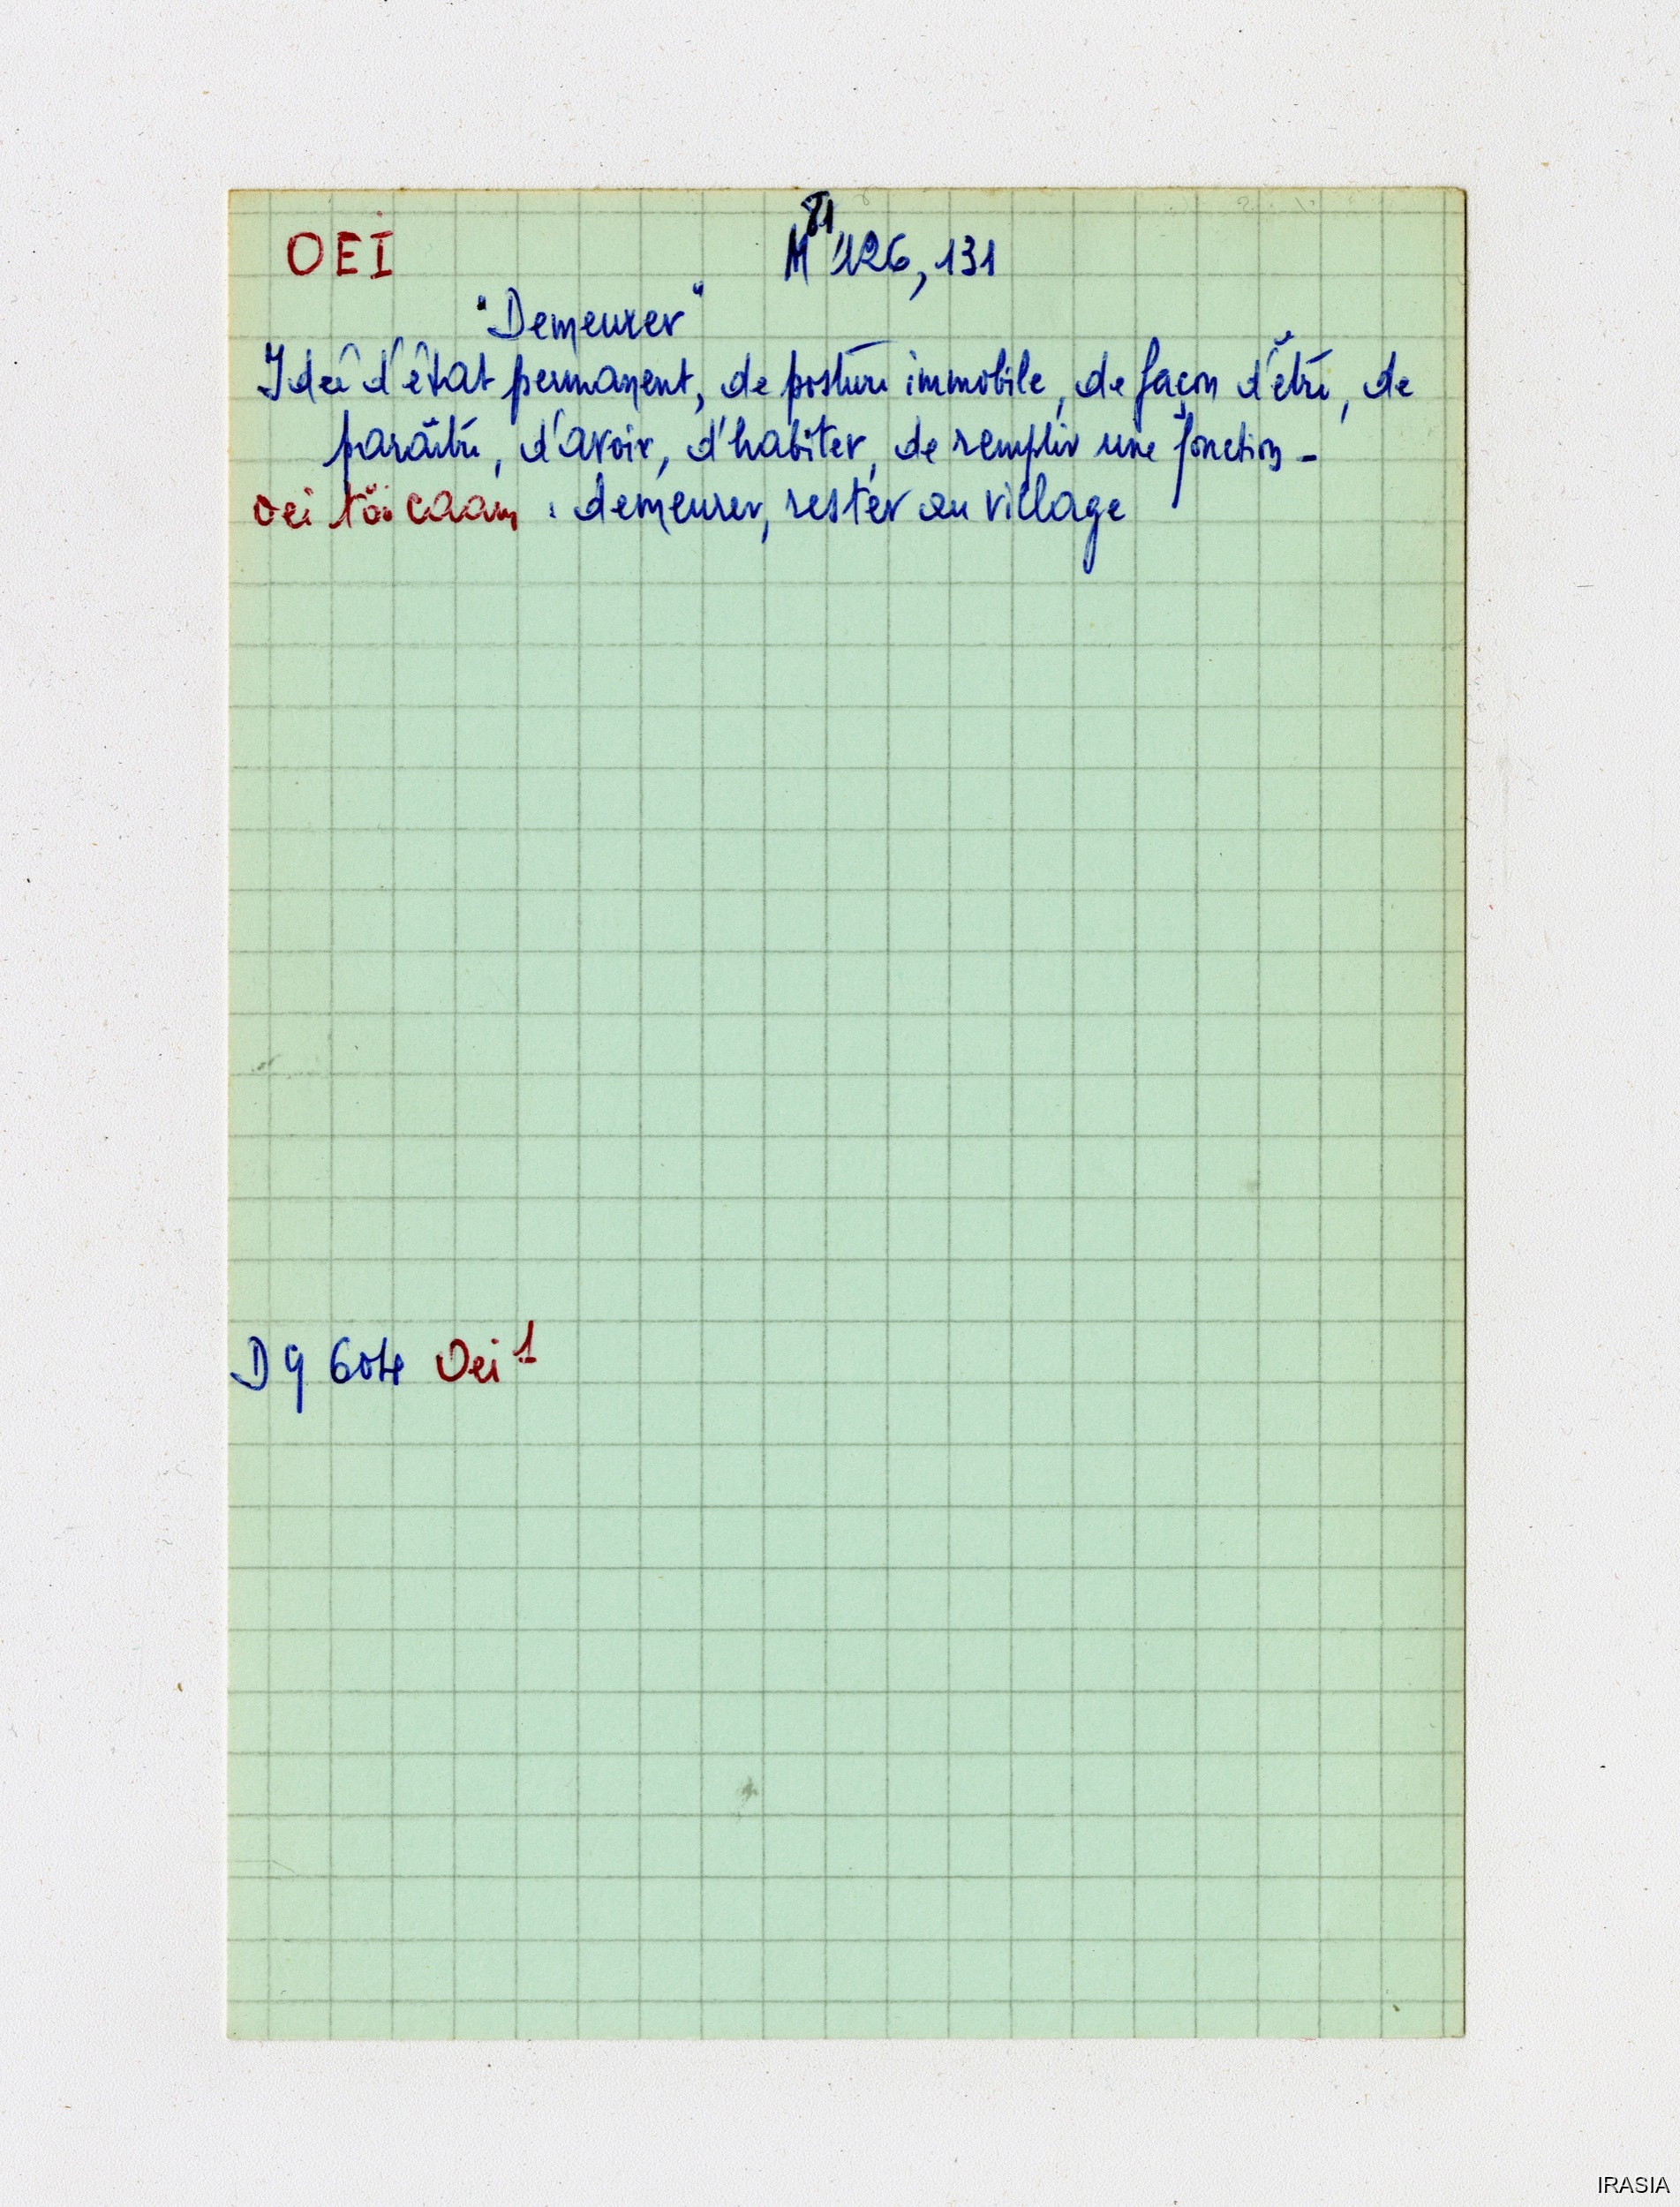 OEI M 81, 126, 131
"Demeurer"
Idée d'état permanent, de posture immobile, de façon d'être, de
paraître, d'avoir, d'habiter, de remplir une fonction -
oei töi caam : demeurer, rester au village
D 9 604 Oei 1
IRASIA